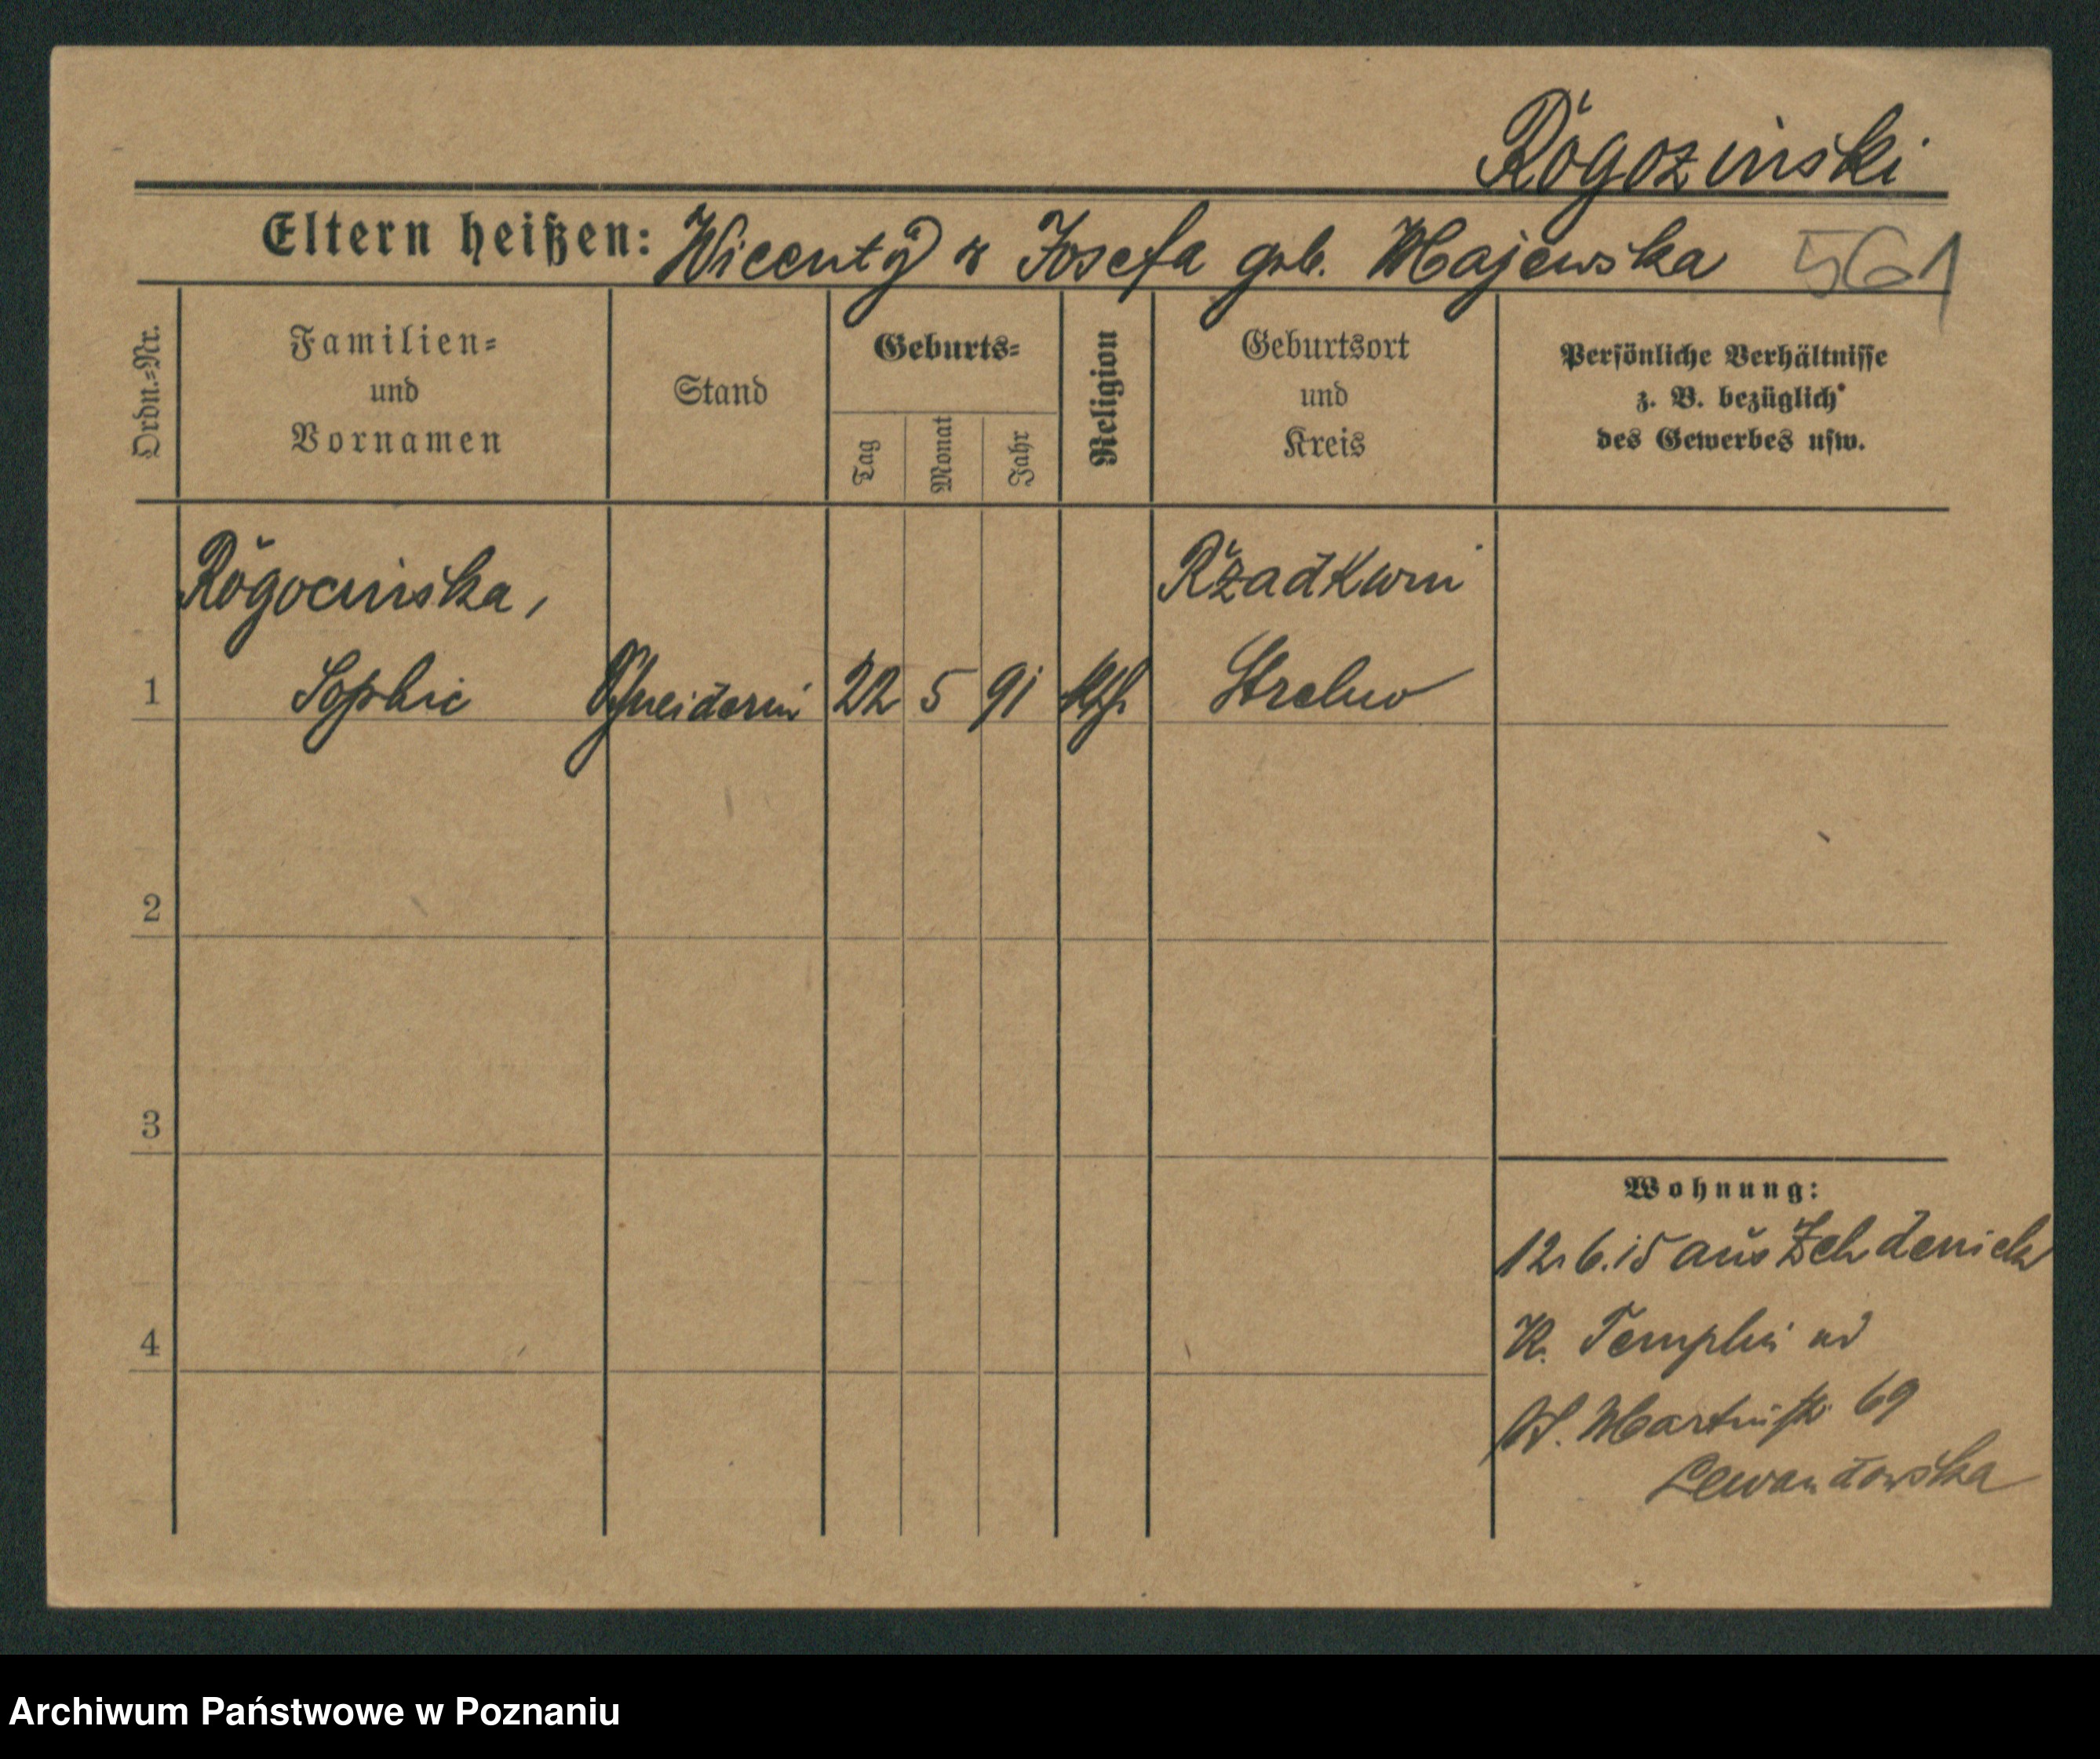 Rogozinski
Eltern heißen: Wicenty & Josefa geb. Majewska 561
Ordn.-Nr.
Familien-
und
Vornamen
Stand
Geburts-
Tag
Monat
Jahr
Religion
Geburtsort
und
Kreis
Persönliche Verhältnisse
z. B. bezüglich
des Gewerbes usw.
Rogocinska,
Rzadkwin
1 Sophie Schneiderin 22 5 91 kth. Strelno
2
3
4
Wohnung:
12.6.15 aus Zehdenick
K. Templin
St. Martinstr 69
Lewandowska
Archiwum Państwowe w Poznaniu